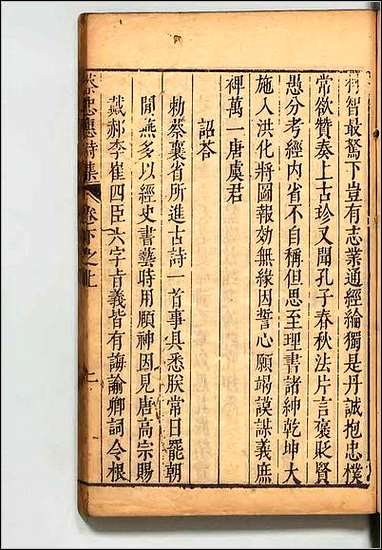 智最駑下豈有志業通經綸獨是丹誠抱忠樸
常欲贊奏上古珍又聞孔子春秋法片言褒貶賢
愚分考經內省不自稱但思至理書諸紳乾坤大
施入洪化將圖報効無緣因誓心願竭謨謀義庶
裨萬一唐虞君
詔荅
勅蔡襄省所進古詩一首事具悉朕常日罷朝
閒燕多以經史書藝時用頥神因見唐高宗賜
戴郝李崔四臣六字㫖義皆有誨諭卿詞令根
蔡忠惠詩集 卷下之上